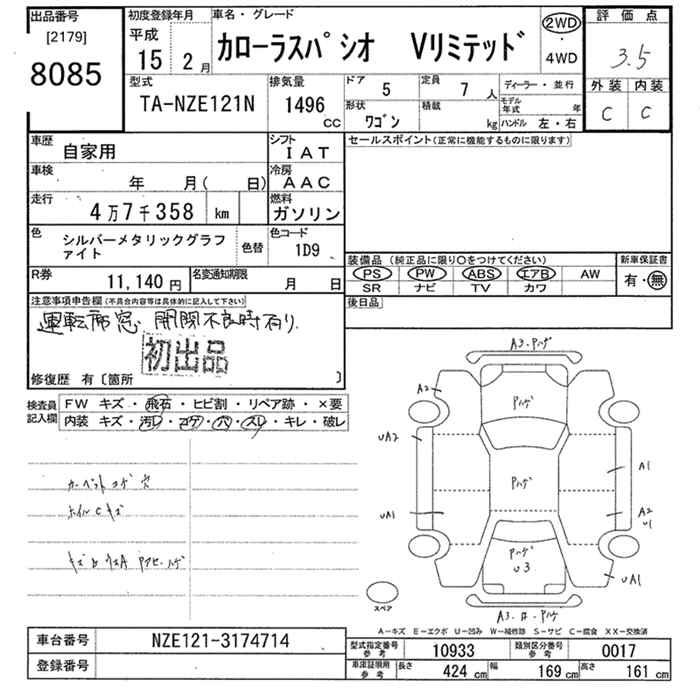 出品番号
[2179]
8085
初度登録年月
平成
15 2月
車名・グレード
カローラスパシオ Vリミテッド
2WD
・
4WD
評価点
3.5
外装 内装
C C
型式
TA-NZE121N
排気量
1496
CC
ドア 5
定員 7 人
形状 ワゴン
積載 kg
ディーラー・並行
モデル年式 年
ハンドル 左・右
車歴 自家用
シフト IAT
車検 年 月( 日)
冷房 AAC
走行 4万7千358 km
燃料 ガソリン
色 シルバーメタリックグラファイト
色替
色コード 1D9
R券 11,140円
名変通知期限 月 日
セールスポイント(正常に機能するものに限ります)
装備品(純正品に限り○をつけてください)
新車保証書
PS PW ABS エアB AW
SR ナビ TV カワ
有・無
後日品
注意事項申告欄(不具合内容等は具体的に記入して下さい)
運転席窓 開閉不良時有り
初出品
修復歴 有〔箇所 〕
検査員記入欄
FW キズ・飛石・ヒビ割・リペア跡・×要
内装 キズ・汚レ・コゲ・穴・スレ・キレ・破レ
カーペットコゲ穴
ホイルCキズ
A3.ハゲ
A2
Pハゲ
UA2
Pハゲ
A1
UA1
A2
U1
Pハゲ
U3
UA1
スペア
A-キズ E-エクボ U-凹み W-補修跡 S-サビ C-腐食 XX-交換済
車台番号 NZE121-3174714
登録番号
型式指定番号 参考 10933
類別区分番号 参考 0017
車庫証明用 参考 長さ 424 cm 幅 169 cm 高さ 161 cm